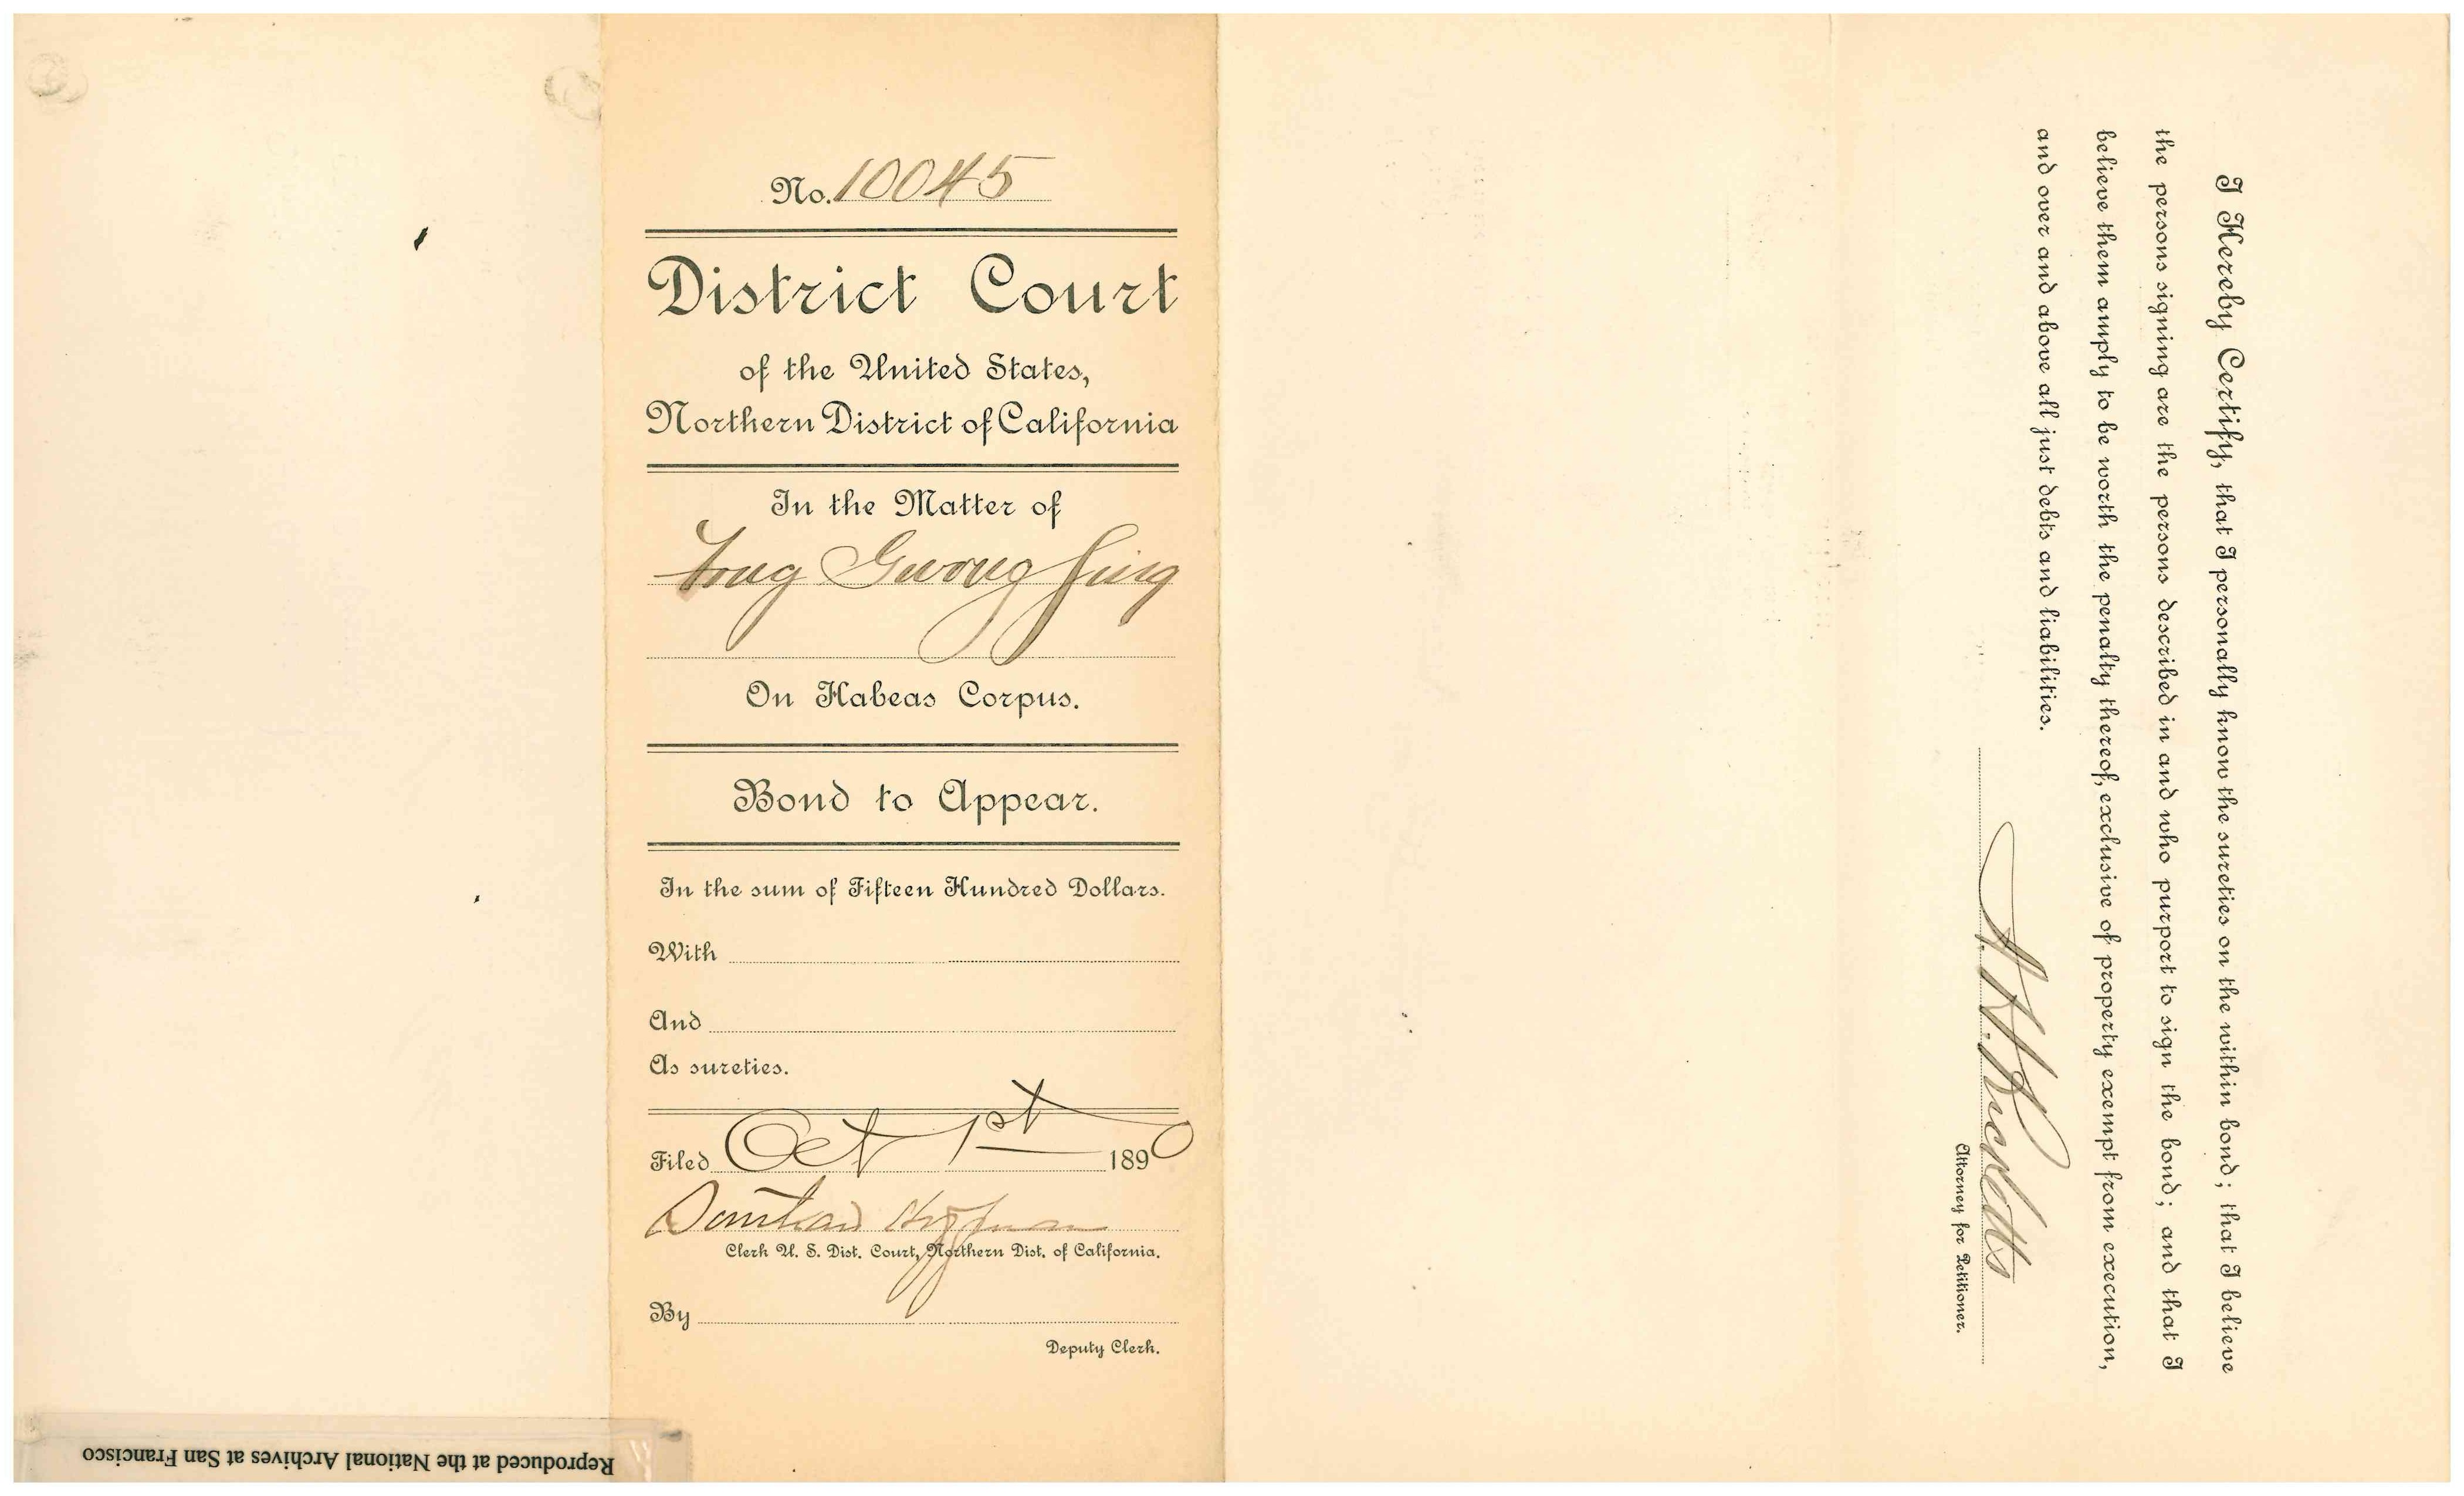 No. 10045
District Court
of the United States,
Northern District of California
In the Matter of
Gwong
On Habeas Corpus.
Bond to Appear.
In the sum of Fifteen Hundred Dollars.
With
And
As sureties.
Filed Oct 1st 1890
Southard Hoffman
Clerk U. S. Dist. Court, Northern Dist. of California.
By
Deputy Clerk.
I Hereby Certify, that I personally know the sureties on the within bond; that I believe
the persons signing are the persons described in and who purport to sign the bond; and that I
believe them amply to be worth the penalty thereof, exclusive of property exempt from execution,
and over and above all just debts and liabilities.
Attorney for Petitioner.
Reproduced at the National Archives at San Francisco